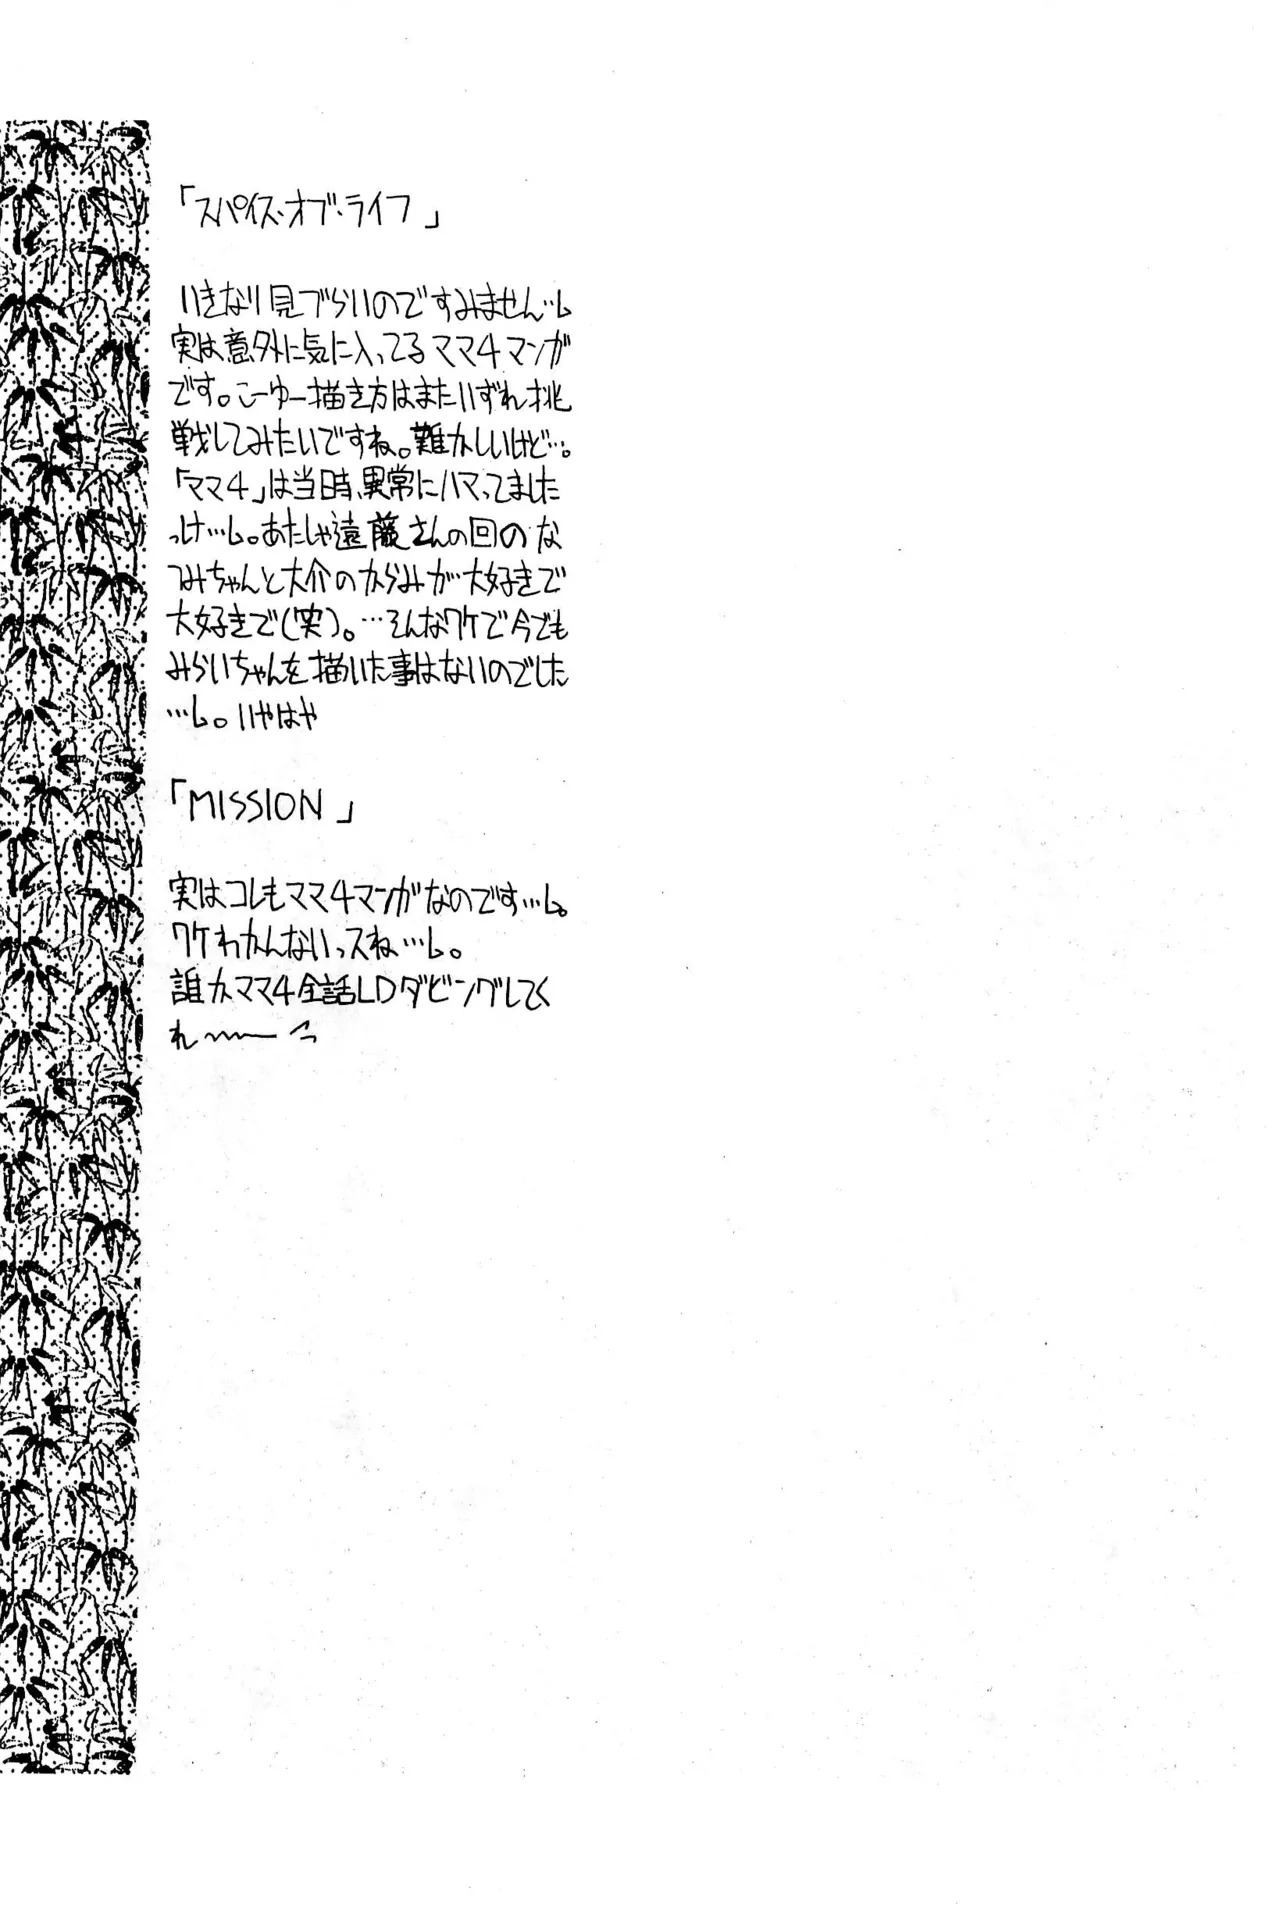 「スパイス・オブ・ライフ」
いきなり見づらいのですみません…し
実は意外に気に入ってるママ4マンガ
です。こーゆー描き方はまたいずれ挑
戦してみたいですね。難かしいけど…。
「ママ4」は当時、異常にハマってました
っけ…し。あたしゃ遠藤さんの回のな
つみちゃんと大介のからみが大好きで
大好きで(笑)。…そんなワケで今でも
みらいちゃんを描いた事はないのでした
…し。いやはや
「MISSION」
実はコレもママ4マンガなのです…し。
ワケわかんないっスね…し。
誰かママ4全話LDダビングしてく
れ〜〜